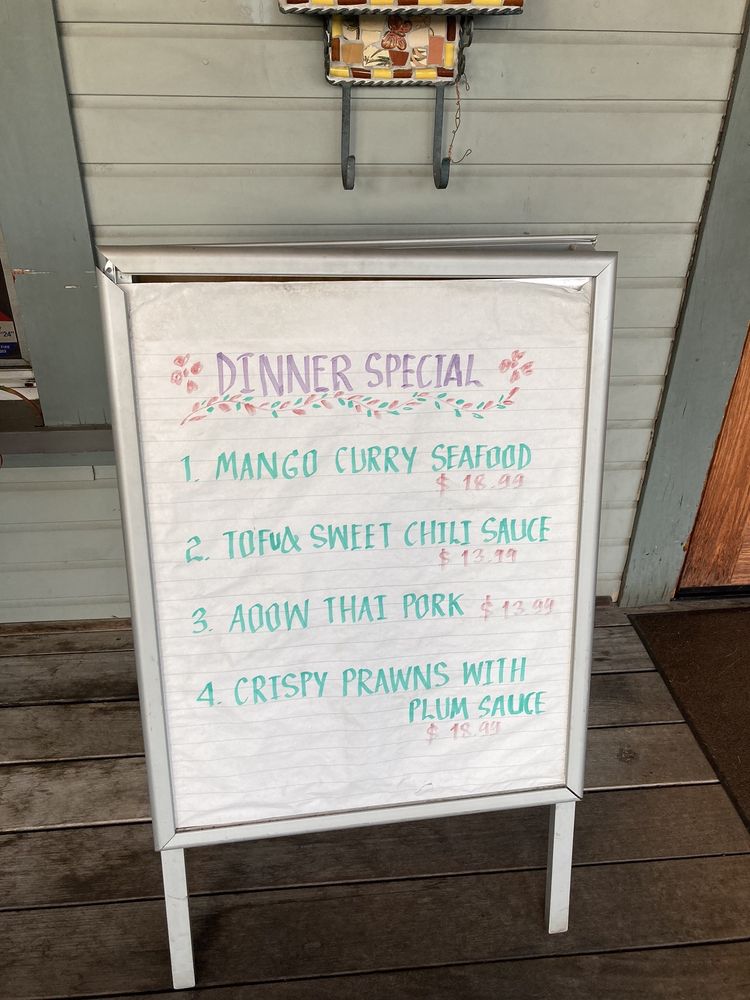 DINNER SPECIAL
1. MANGO CURRY SEAFOOD
$ 18.99
2. TOFU & SWEET CHILI SAUCE
$ 13.99
3. AOOW THAI PORK $ 13.99
4. CRISPY PRAWNS WITH
PLUM SAUCE
$ 18.99